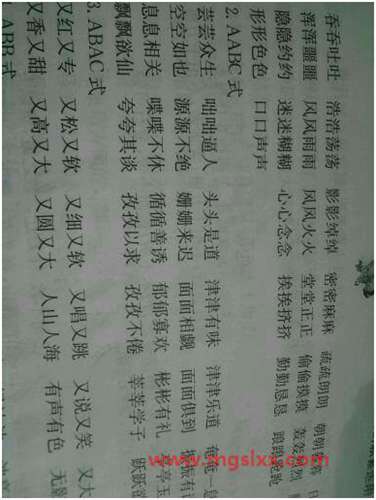 吞吞吐吐 浩浩荡荡 影影绰绰 密密麻麻 疏疏朗朗 朝朝
浑浑噩噩 风风雨雨 风风火火 堂堂正正 偷偷摸摸 轰轰烈
隐隐约约 迷迷糊糊 心心念念 挨挨挤挤 勤勤恳恳
形形色色 口口声声
2. AABC 式
芸芸众生 咄咄逼人 头头是道 津津有味 津津乐道
空空如也 源源不绝 姗姗来迟 面面相觑 面面俱到 振有
息息相关 喋喋不休 循循善诱 郁郁寡欢 彬彬有礼 亭玉
飘飘欲仙 夸夸其谈 孜孜以求 孜孜不倦 莘莘学子 跃跃欲
3. ABAC 式
又红又专 又松又软 又细又软 又唱又跳 又说又笑 又大
又香又甜 又高又大 又圆又大 人山人海 有声有色 无影
ABB 式
www.mgslxx.com